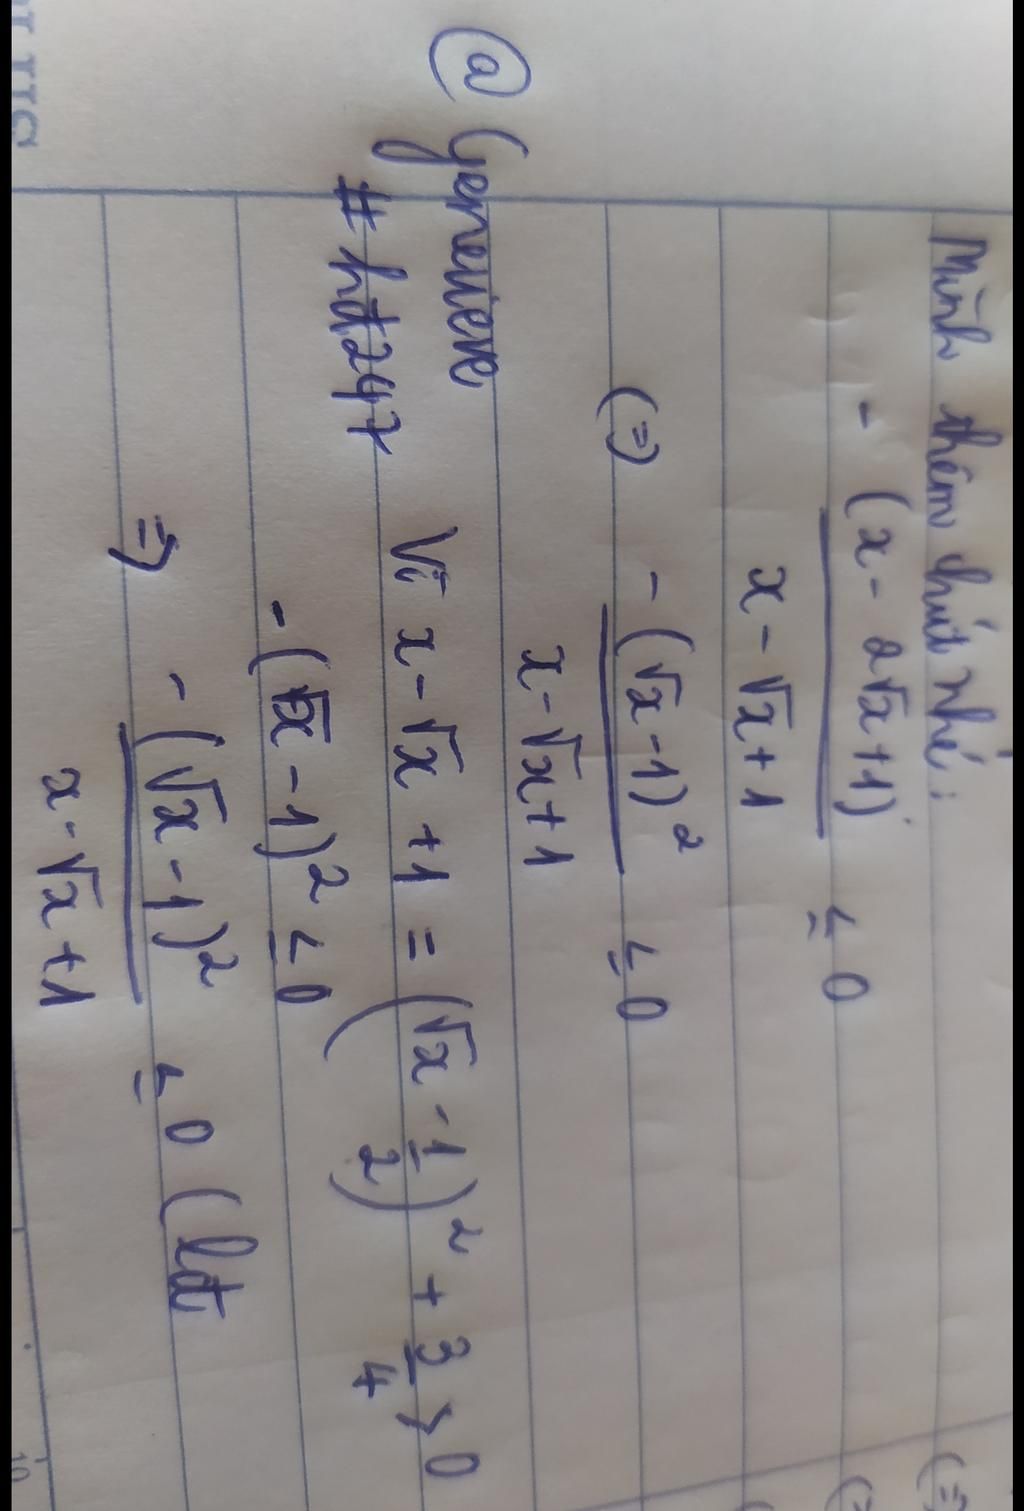 Mình thêm chút nhé:
- (x - 2√x + 1) / (x - √x + 1) ≤ 0
(=) - (√x - 1)² / (x - √x + 1) ≤ 0
@ Genevieve
Vì x - √x + 1 = (√x - 1/2)² + 3/4 > 0
# hđ247
- (√x - 1)² ≤ 0
=> - (√x - 1)² / (x - √x + 1) ≤ 0 (lđ